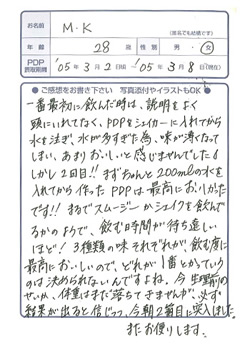 お名前 M.K
(匿名でも結構です)
年齢 28歳 性別 男・女
PDP摂取期間 '05年3月2日(始)~'05年3月8日(現在)
●ご感想をお書き下さい 写真添付やイラストもOK!
一番最初に飲んだ時は、説明をよく
頭にいれてなく、PDPをシェイカーに入れてから
水を注ぎ、水が多すぎた為、味が薄くなって
しまい、あまりおいしいと感じませんでした。
しかし2回目!!まずちゃんと200mlの水を
入れてから作ったPDPは最高においしかった
です!!まるでスムージーかシェイクを飲んで
るかのようで、飲む時間が待ち遠しい
ほど!3種類の味それぞれが、飲む度に
最高においしいので、どれが1番とかっていう
のは決められないんですよね。今生理前の
せいか、体重はまだ落ちてきませんが、必ず
結果が出ると信じつつ、今朝2箱目に突入しました。
またお便りします。